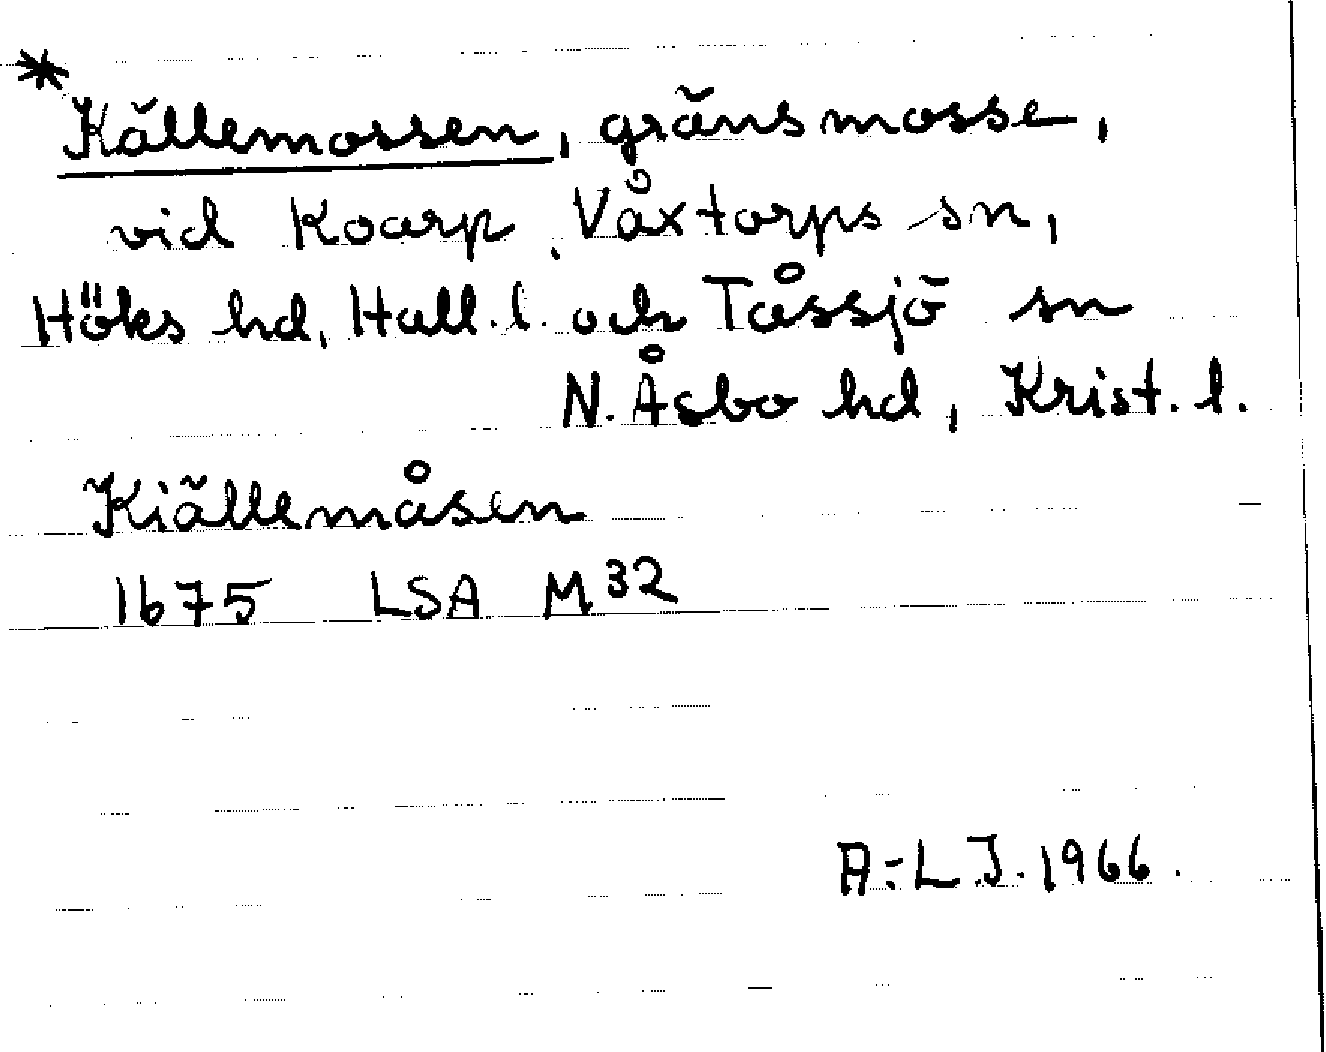 *
Källemossen, gränsmosse,
vid Koarp, Våxtorps sn,
Höks hd, Hall. l. och Tåssjö sn
N. Åsbo hd, Krist. l.
Kiällemåsen
1675 LSA M 32
A-L J. 1966.